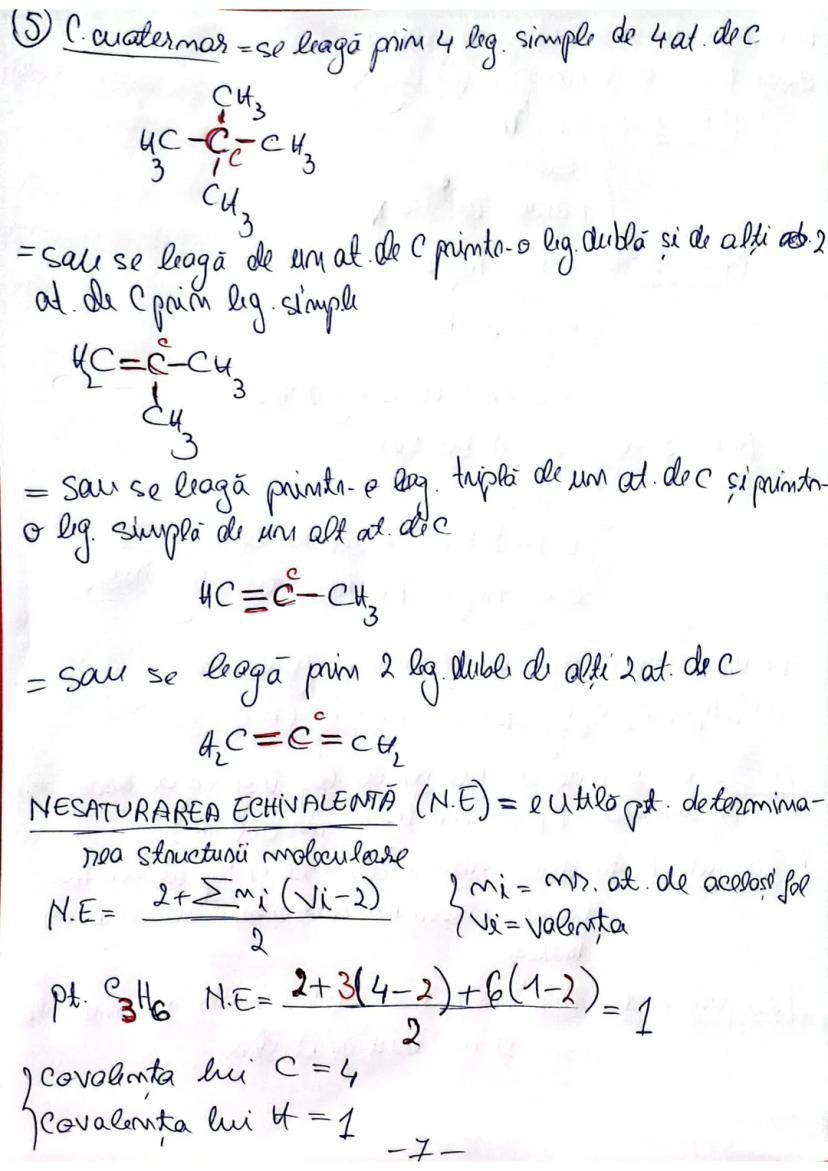 ⑤ C. cuaternar = se leagă prin 4 leg. simple de 4 at. de C
CH3
H3C-C-CH3
c
CH3
= sau se leagă de un at. de C printr-o leg. dublă și de alți 2
at. de C prin leg. simple
c
H2C=C-CH3
CH3
= sau se leagă printr-o leg. triplă de un at. de C și printr-
o leg. simplă de un alt at. de C
c
HC≡C-CH3
= sau se leagă prin 2 leg. duble de alți 2 at. de C
c
H2C=C=CH2
NESATURAREA ECHIVALENTĂ (N.E) = e utilă pt. determina-
rea structurii moleculare
N.E = (2+Σni(Vi-2))/2 { ni = nr. at. de același fel
{ Vi = valența
pt. C3H6 N.E = (2+3(4-2)+6(1-2))/2 = 1
{ covalența lui C = 4
{ covalența lui H = 1
-7-